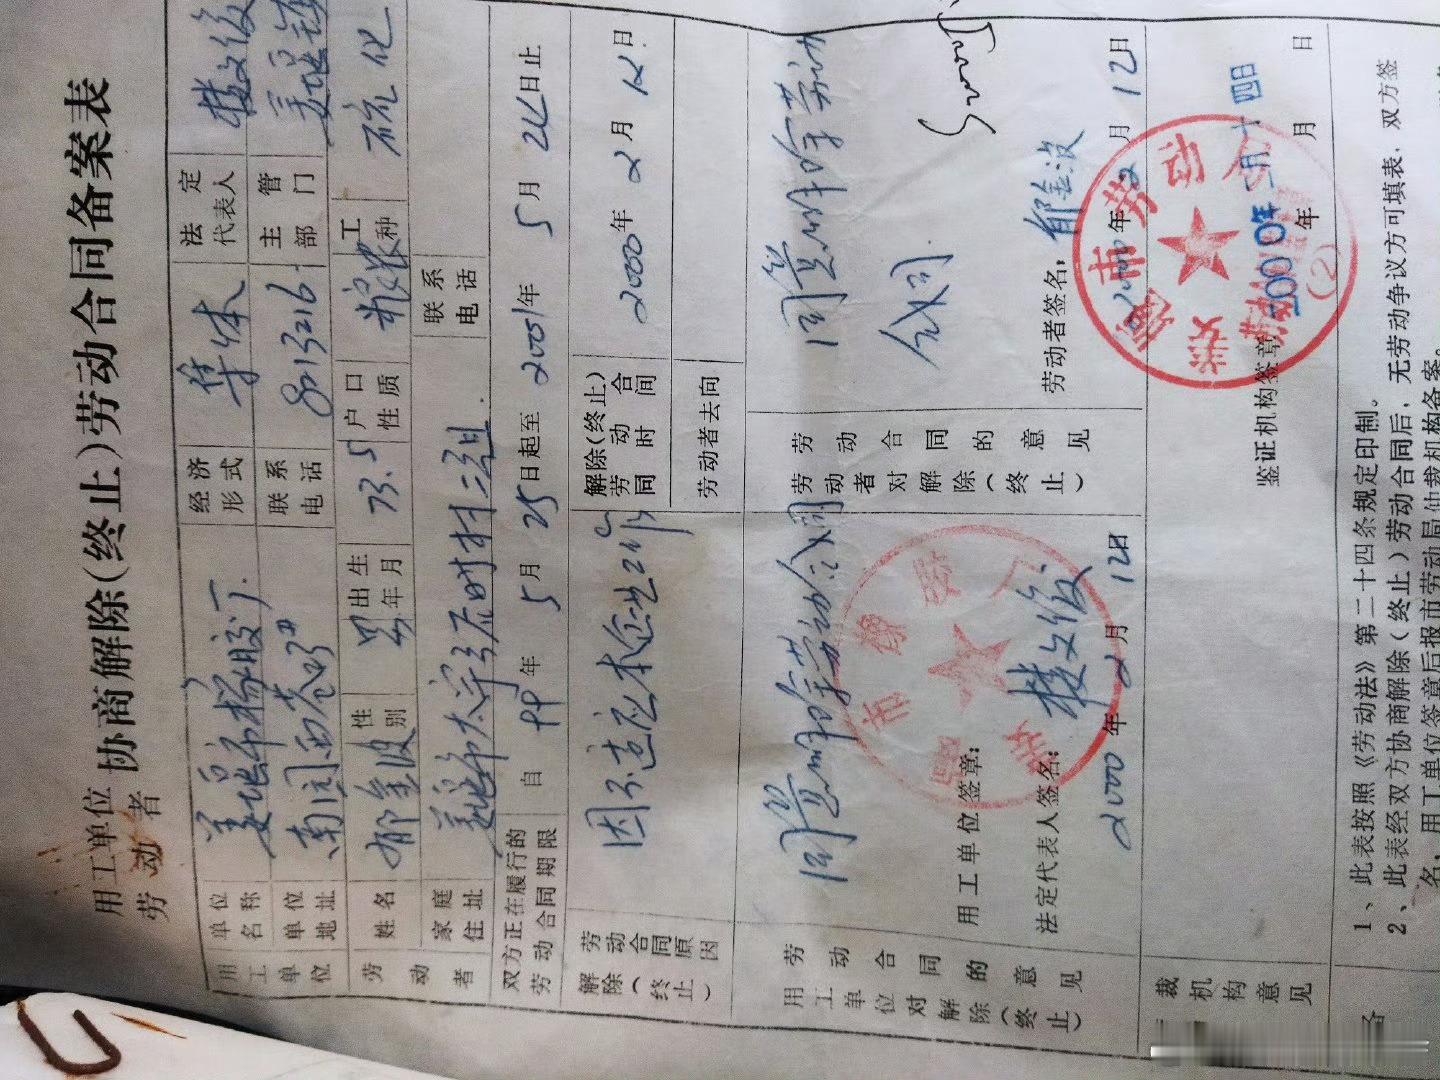 用工单位
劳动者
协商解除(终止)劳动合同备案表
用工单位
单位名称
姜堰市橡胶厂
经济形式
集体
法定代表人
楼文俊
单位地址
联系电话
8813216
主管部门
姜堰镇
劳动者
姓名
郁金波
性别
男
出生年月
73.5
户口性质
粮农
工种
硫化
家庭住址
姜堰市太宇引居时村三组
联系电话
双方正在履行的劳动合同期限
自99年5月25日起至2001年5月24日止
解除(终止)劳动合同原因
因不适应本企业工作
解除(终止)劳动合同时间
2000年2月12日
劳动者去向
用工单位对解除(终止)劳动合同的意见
同意解除劳动合同
用工单位签章:
法定代表人签名:楼文俊
2000年2月12日
劳动者对解除(终止)劳动合同的意见
同意解除劳动合同.
劳动者签名:郁金波
2000年2月12日
裁机构意见
鉴证机构签章
2000年二月十四日
年 月 日
1、此表按照《劳动法》第二十四条规定印制。
2、此表经双方协商解除(终止)劳动合同后,无劳动争议方可填表,双方签
名,用工单位签章后报市劳动局仲裁机构备案。